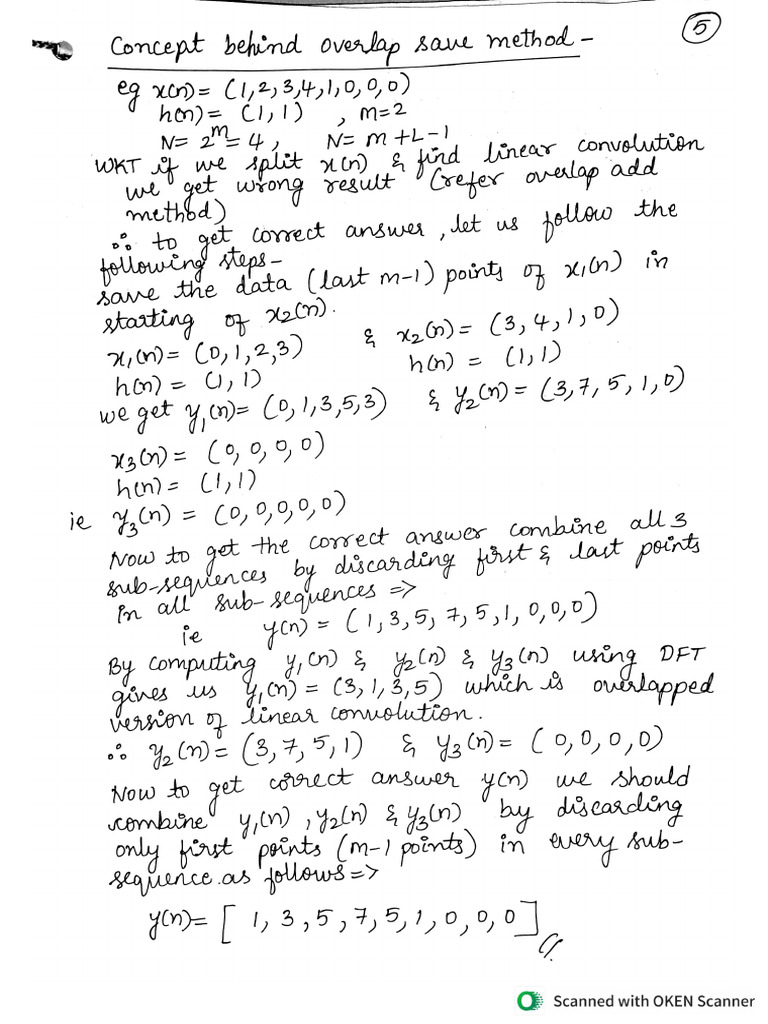 5
Concept behind overlap save method-
eg x(n)= (1,2,3,4,1,0,0,0)
h(n)= (1,1) , m=2
N= 2^m= 4, N= m+L-1
WKT if we split x(n) & find linear convolution
we get wrong result (refer overlap add
method)
∴ to get correct answer, let us follow the
following steps-
save the data (last m-1) points of x₁(n) in
starting of x₂(n).
x₁(n)= (0,1,2,3) & x₂(n)= (3,4,1,0)
h(n)= (1,1) h(n) = (1,1)
we get y₁(n)= (0,1,3,5,3) & y₂(n)= (3,7,5,1,0)
x₃(n)= (0,0,0,0)
h(n)= (1,1)
ie y₃(n) = (0,0,0,0,0)
Now to get the correct answer combine all 3
sub-sequences by discarding first & last points
in all sub-sequences =>
ie y(n) = (1,3,5,7,5,1,0,0,0)
By computing y₁(n) & y₂(n) & y₃(n) using DFT
gives us y₁(n) = (3,1,3,5) which is overlapped
version of linear convolution.
∴ y₂(n)= (3,7,5,1) & y₃(n)= (0,0,0,0)
Now to get correct answer y(n) we should
combine y₁(n), y₂(n) & y₃(n) by discarding
only first points (m-1 points) in every sub-
sequence.as follows=>
y(n)= [1,3,5,7,5,1,0,0,0]
Scanned with OKEN Scanner